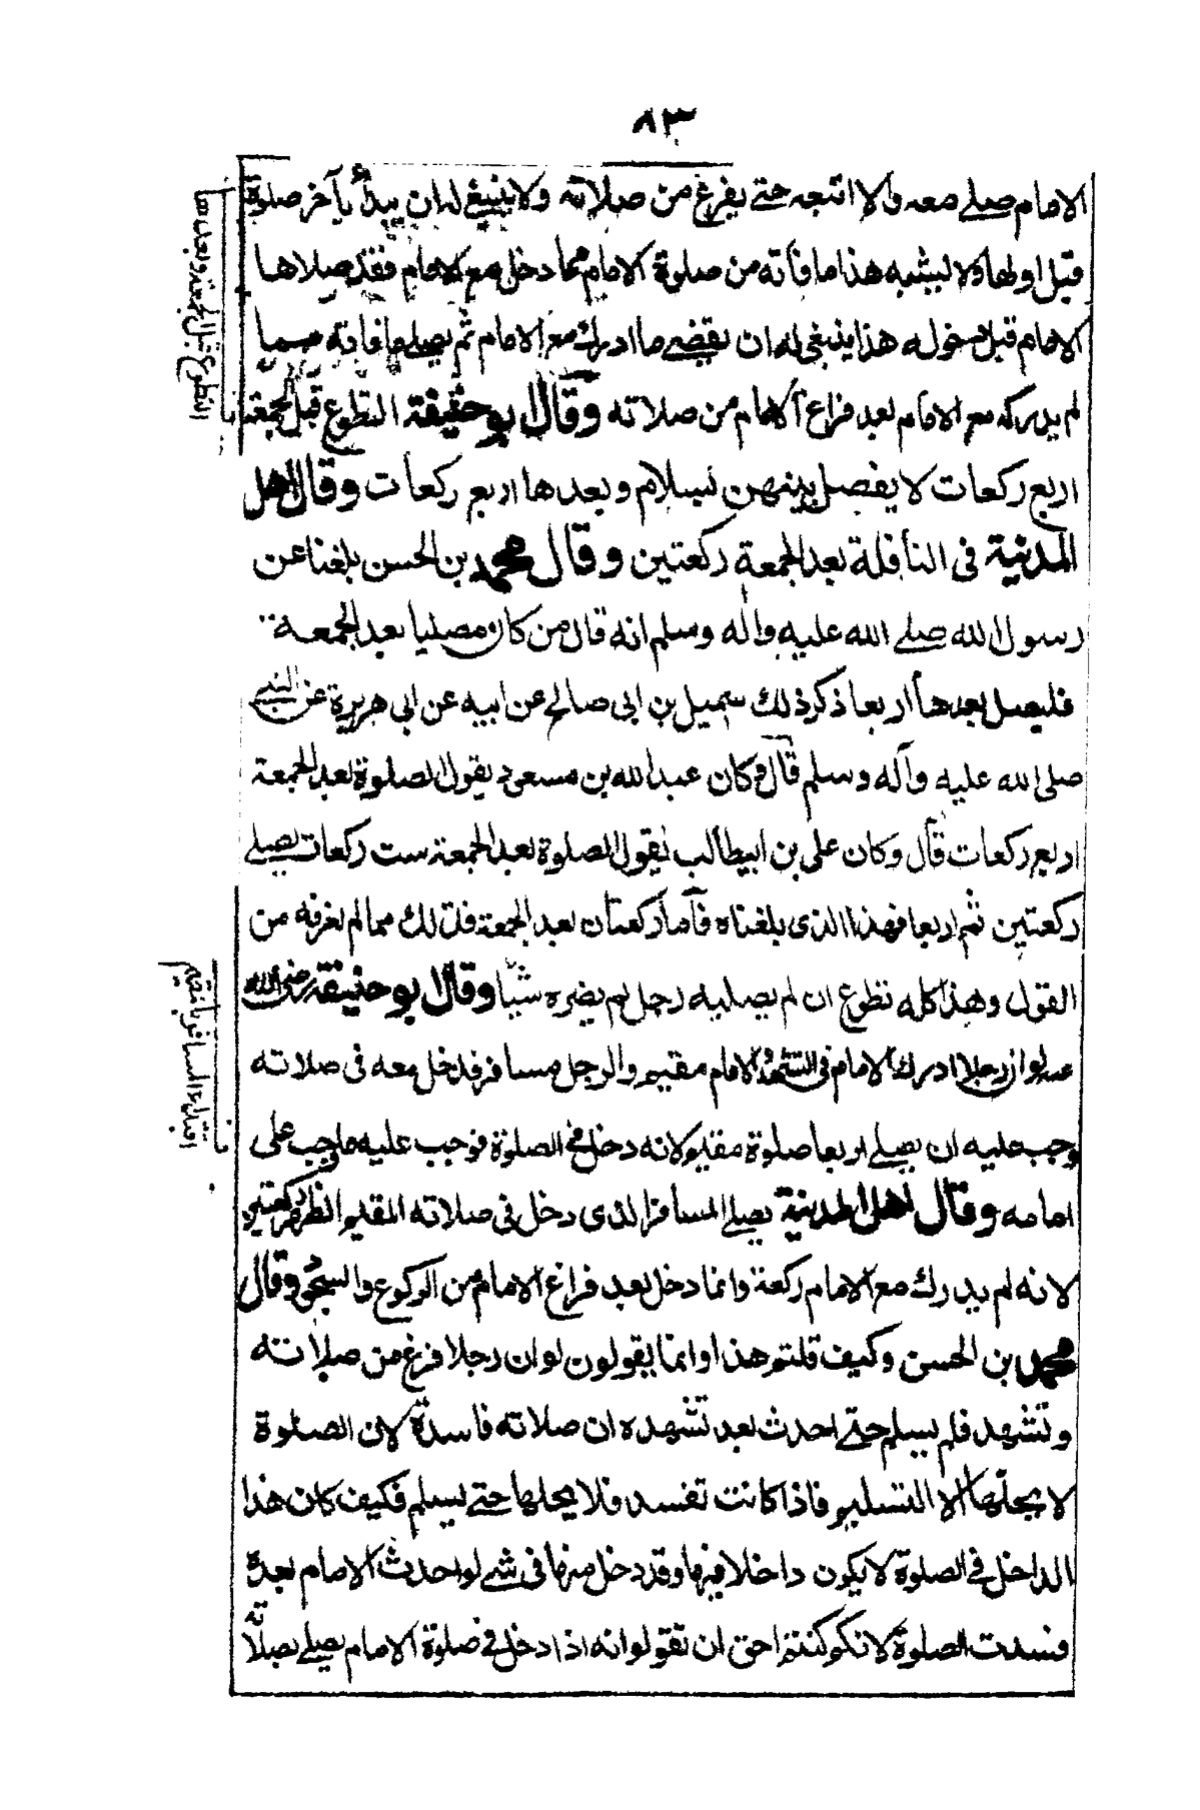 ٨٣
الامام صلے معه والا اتبعه حتے يفرغ من صلاته ولا ينبغے له ان يبدأ بآخر صلوة
قبل اولها ولا ليشبه هذا ما فاته من صلوة الامام مما دخل مع الامام فقد صلاها
الامام قبل دخوله هذا ينبغى له ان يقضے ما ادرك مع الامام ثم يصلے ما فاته مما
لم يدركه مع الامام بعد فراغ الامام من صلاته وقال ابو حنيفة التطوع قبل الجمعة
اربع ركعات لا يفصل بينهن بسلام و بعدها اربع ركعات وقال اهل
المدينة فى النافلة بعد الجمعة ركعتين وقال محمد بن الحسن بلغنا عن
رسول الله صلے الله عليه واله وسلم انه قال من كان مصليا بعد الجمعة
فليصل بعدها اربعا ذكر ذلك سهيل بن ابى صالح عن ابيه عن ابى هريرة عن النبے
صلى الله عليه وآله وسلم قال وكان عبد الله بن مسعود يقول الصلوة بعد الجمعة
اربع ركعات قال وكان على بن ابيطالب يقول الصلوة بعد الجمعة ست ركعات يصلے
ركعتين ثم اربعا فهذا الذى بلغناه فأما ركعتان بعد الجمعة فذلك مما لم نعرفه من
القول وهذا كله تطوع ان لم يصليه رجل لم يضره شيا وقال ابو حنيفة رضى الله
عنه لو ان رجلا ادرك الامام فى التشهد الامام مقيم والرجل مسافر فدخل معه فى صلاته
وجب عليه ان يصلے اربعا صلوة مقيم لانه دخل فى الصلوة فوجب عليه ما وجب على
امامه وقال اهل المدينة يصلے المسافر الذى دخل فى صلاته المقيم الظهر ركعتين
لانه لم يدرك مع الامام ركعة وانما دخل بعد فراغ الامام من الركوع والسجود وقال
محمد بن الحسن وكيف قلتم هذا وانما يقولون لو ان رجلا فرغ من صلاته
وتشهد فلم يسلم حتے احدث بعد تشهده ان صلاته فاسدة لان الصلوة
لا يحلها الا التسليم فاذا كانت تفسد فلا يحلها حتے يسلم فكيف كان هذا
الداخل فى الصلوة لا يكون داخلا فيها وقد دخل منها فى شے لو احدث الامام بعده
فسدت الصلوة لانكم كنتم احق ان تقولوا انه اذا دخل فى صلوة الامام يصلے بصلاته
التطوع قبل الجمعة وبعدها
اقتداء المسافر بالمقيم